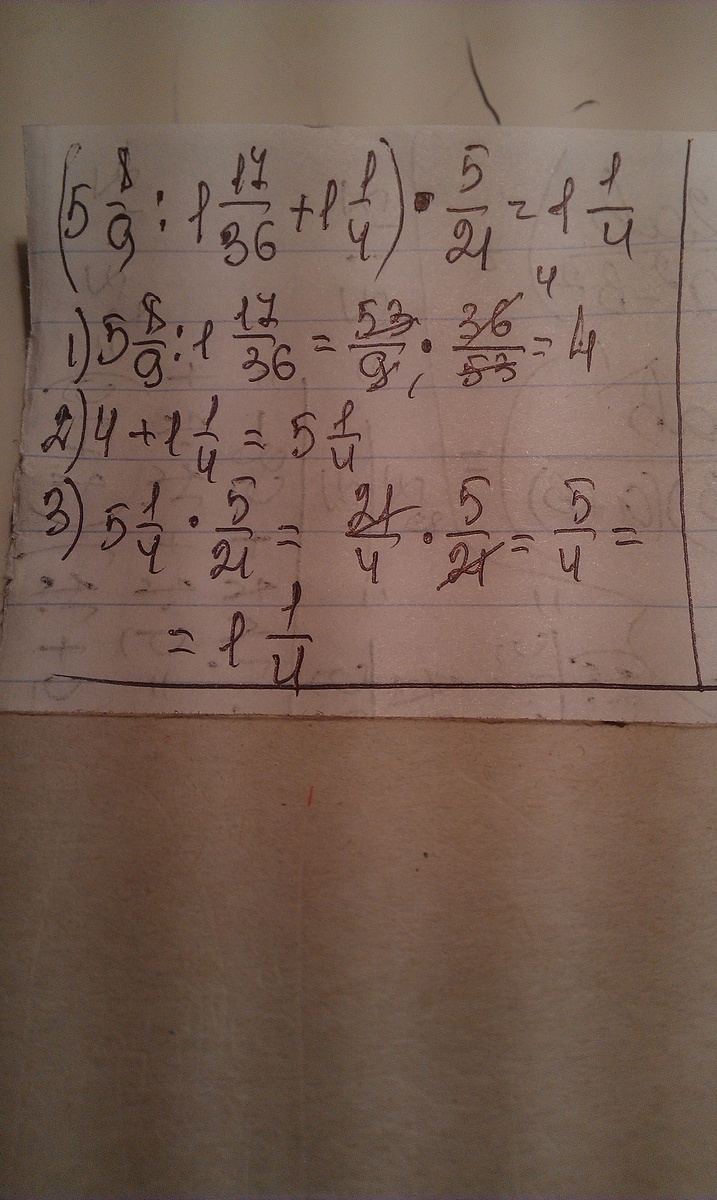 (5 8/9 : 1 17/36 + 1 1/4) · 5/21 = 1 1/4
1) 5 8/9 : 1 17/36 = 53/9 · 36/53 = 4
2) 4 + 1 1/4 = 5 1/4
3) 5 1/4 · 5/21 = 21/4 · 5/21 = 5/4 =
= 1 1/4